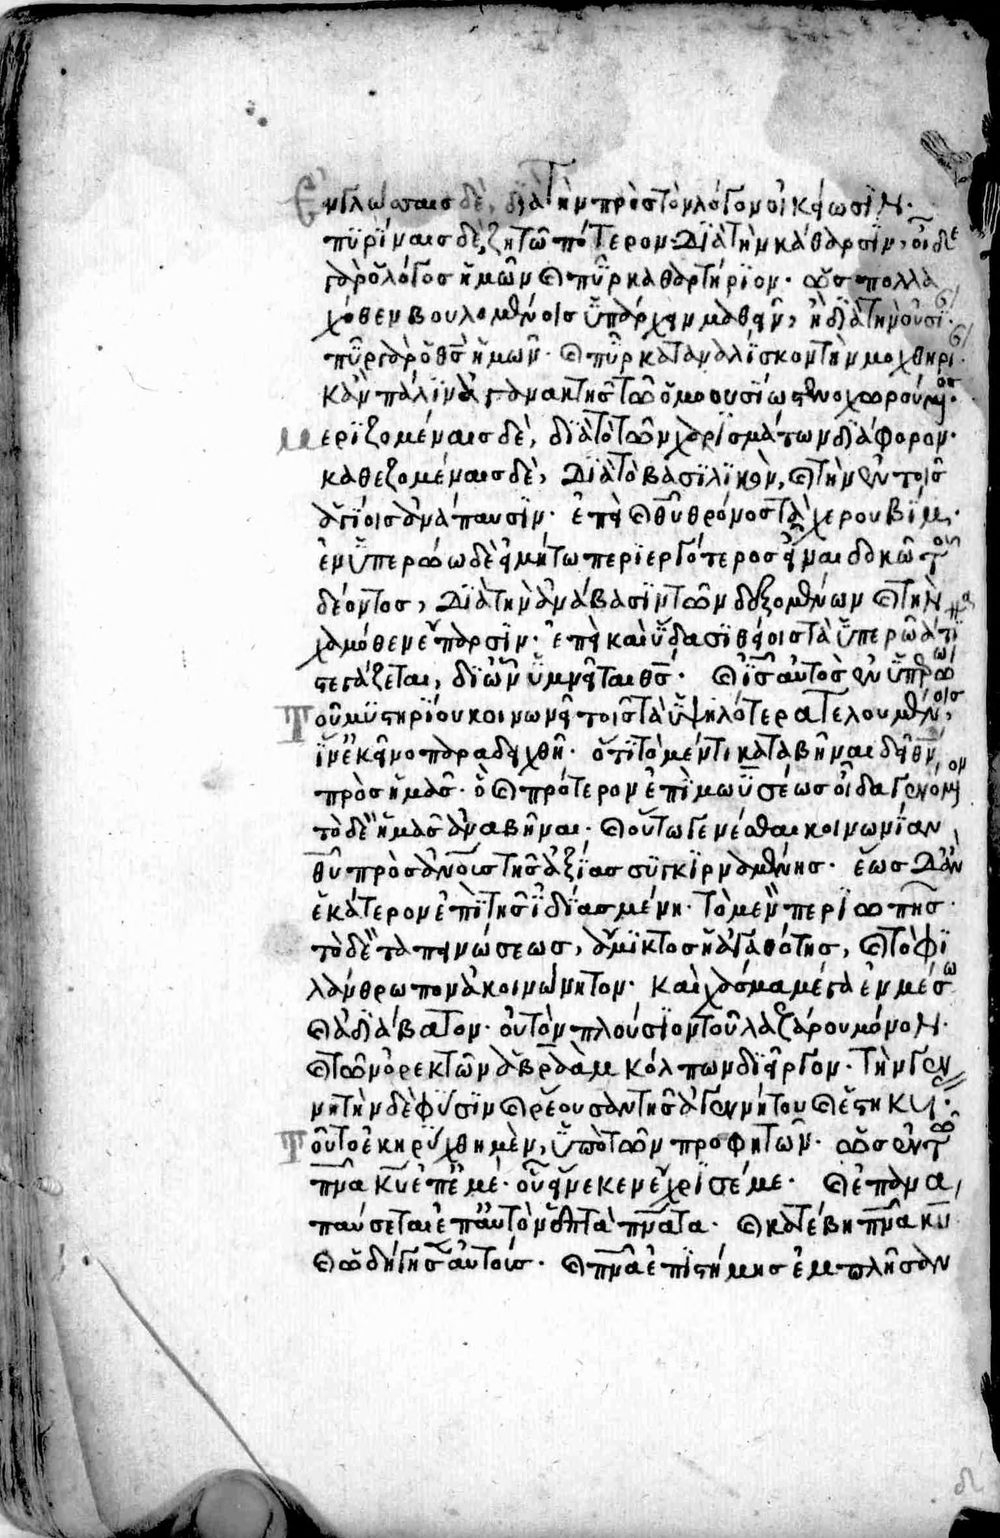 Ἐν γλώσσαις δὲ, διὰ τὴν πρὸς τὸν λόγον οἰκείωσιν·
πυρίναις δὲ, ζητῶ πότερον· διὰ τὴν κάθαρσιν, οἶδε
γὰρ ὁ λόγος ἡμῶν καὶ πῦρ καθαρτήριον· ὡς πολλα
χόθεν βουλομένοις ὑπάρχειν μαθεῖν, ἢ διὰ τὴν οὐσί·
πῦρ γὰρ ὁ θς ἡμῶν· καὶ πῦρ καταναλίσκον τὴν μοχθηρί·
κἂν πάλιν ἀγανακτῇς τῶ ὁμοουσίω στενοχωρούμενος·
μεριζομέναις δὲ, διὰ τὸ τῶν χαρισμάτων διάφορον·
καθεζομέναις δὲ, διὰ τὸ βασιλικὸν, καὶ τὴν ἐν τοῖς
ἁγίοις ἀνάπαυσιν· ἐπεὶ καὶ θυ θρόνος τὰ χερουβίμ·
ἐν ὑπερώω δὲ εἰ μήτω περιεργότερος εἶναι δοκῶ τοῦ
δέοντος, διὰ τὴν ἀνάβασιν τῶν δεξομένων καὶ τὴν
χαμόθεν ἔπαρσιν· ἐπεὶ καὶ ὕδασι θείοις τὰ ὑπερῶά τι
στεγάζεται, δι ὧν ὑμνεῖται θς· καὶ ις αὐτὸς ἐν ὑπερώω
τοῦ μυστηρίου κοινωνεῖ τοῖς τὰ ὑψηλότερα τελουμένοις,
ἵν ἐκεῖνο παραδειχθῆ· ὅτι τὸ μέν τι καταβῆναι δεῖ θν
πρὸς ἡμᾶς· ὃ καὶ πρότερον ἐπὶ μωϋσέως οἶδα γενόμενον
τὸ δὲ ἡμᾶς ἀναβῆναι· καὶ οὕτω γενέσθαι κοινωνίαν
θυ πρὸς ἀνους τῆς ἀξίας συγκιρναμένης· ἕως δ ἂν
ἑκάτερον ἐπὶ τῆς ἰδίας μένη· τὸ μὲν περιωπῆς·
τὸ δὲ ταπεινώσεως, ἄμικτος ἡ ἀγαθότης, καὶ τὸ φι
λάνθρωπον ἀκοινώνητον· καὶ χάσμα μέγα ἐν μέσω
καὶ ἀδιάβατον· οὐ τὸν πλούσιον τοῦ λαζάρου μόνον·
καὶ τῶν ὀρεκτῶν ἀβραὰμ κόλπων διεῖργον· τὴν γεν
νητὴν δὲ φύσιν καὶ ῥέουσαν τῆς ἀγεννήτου καὶ ἑστηκυ·
τοῦτο ἐκηρύχθη μὲν, ὑπὸ τῶν προφητῶν· ὡς ἐν τῶ
πνα κυ ἐπ ἐμέ· οὗ εἵνεκεν ἔχρισέ με· καὶ ἐπανα
παύσεται ἐπ αὐτὸν ἑπτὰ πνατα· καὶ κατέβη πνα κυ
καὶ ὡδήγησεν αὐτούς· καὶ πνα ἐπιστήμης ἐμπλῆσαν